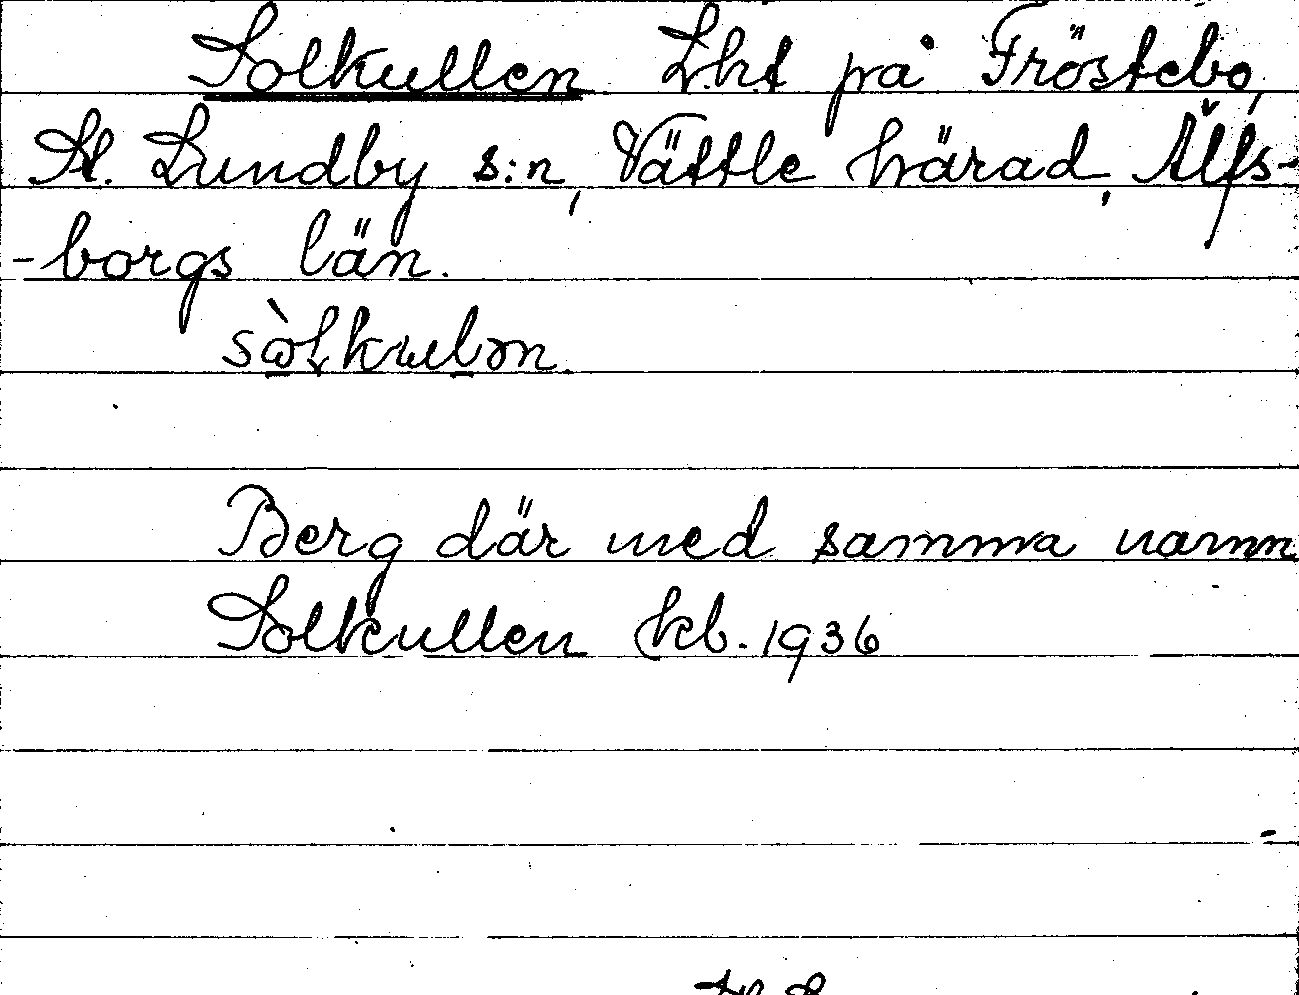 Solkullen Lht på Fröstebo,
St. Lundby s:n, Vättle härad, Älfs-
-borgs län.
Berg där med samma namn
Solkullen kb. 1936